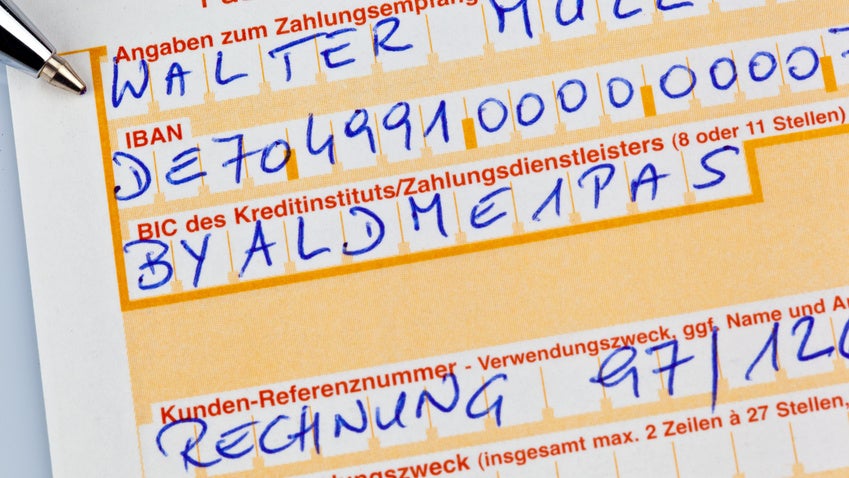 Angaben zum Zahlungsempfäng
WALTER MÜLL
IBAN
DE70499100000000007
BIC des Kreditinstituts/Zahlungsdienstleisters (8 oder 11 Stellen)
BYALDME1PAS
Kunden-Referenznummer - Verwendungszweck, ggf. Name und A
RECHNUNG 97/12
ngszweck (insgesamt max. 2 Zeilen à 27 Stellen,